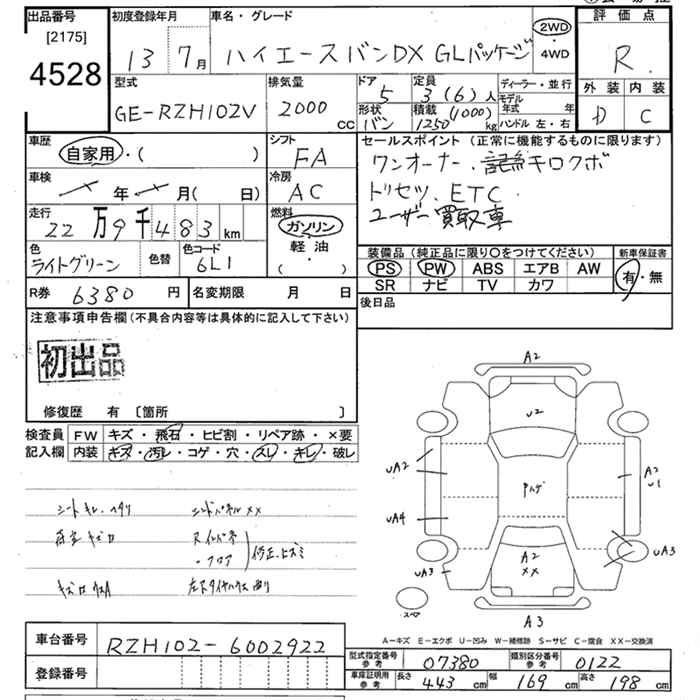 出品番号
[2175]
4528
初度登録年月
13 7月
車名・グレード
ハイエースバンDX GLパッケージ
2WD・4WD
評価点
R
外装 内装
D C
型式
GE-RZH102V
排気量
2000 cc
ドア
5
形状
バン
定員
3(6)人
積載
1250 (1000) kg
ディーラー・並行
モデル年式 年
ハンドル 左・右
車歴
自家用・( )
シフト
FA
車検
年 月( 日)
冷房
AC
走行
22万9千483km
燃料
ガソリン
軽油
( )
色
ライトグリーン
色替
色コード
6L1
セールスポイント (正常に機能するものに限ります)
ワンオーナー、記録キロクボ
トリセツ、ETC
ユーザー買取車
装備品 (純正品に限り〇をつけてください)
PS PW ABS エアB AW
SR ナビ TV カワ
新車保証書
有・無
R券 6380円
名変期限 月 日
後日品
注意事項申告欄(不具合内容等は具体的に記入して下さい)
初出品
修復歴 有 〔箇所 〕
検査員記入欄
FW キズ・飛石・ヒビ割・リペア跡・×要
内装 キズ・汚レ・コゲ・穴・スレ・キレ・破レ
A2
U2
UA2
A2
U1
UA4
A2
××
UA3
UA3
A3
A-キズ E-エクボ U-凹み W-補修跡 S-サビ C-腐食 XX-交換済
車台番号
RZH102-6002922
登録番号
型式指定番号 参考
07380
類別区分番号 参考
0122
車庫証明用 参考
長さ 443 cm
幅 169 cm
高さ 198 cm